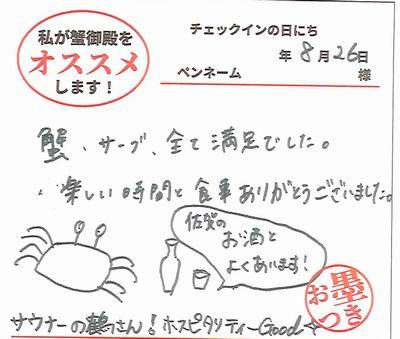 私が蟹御殿を
オススメ
します！
チェックインの日にち
年 8月 26日
ペンネーム 様
蟹、サーブ、全て満足でした。
楽しい時間と食事ありがとうございました。
佐賀の
お酒と
よくあいます！
サウナーの鶴さん！ホスピタリティーGood
お墨つき